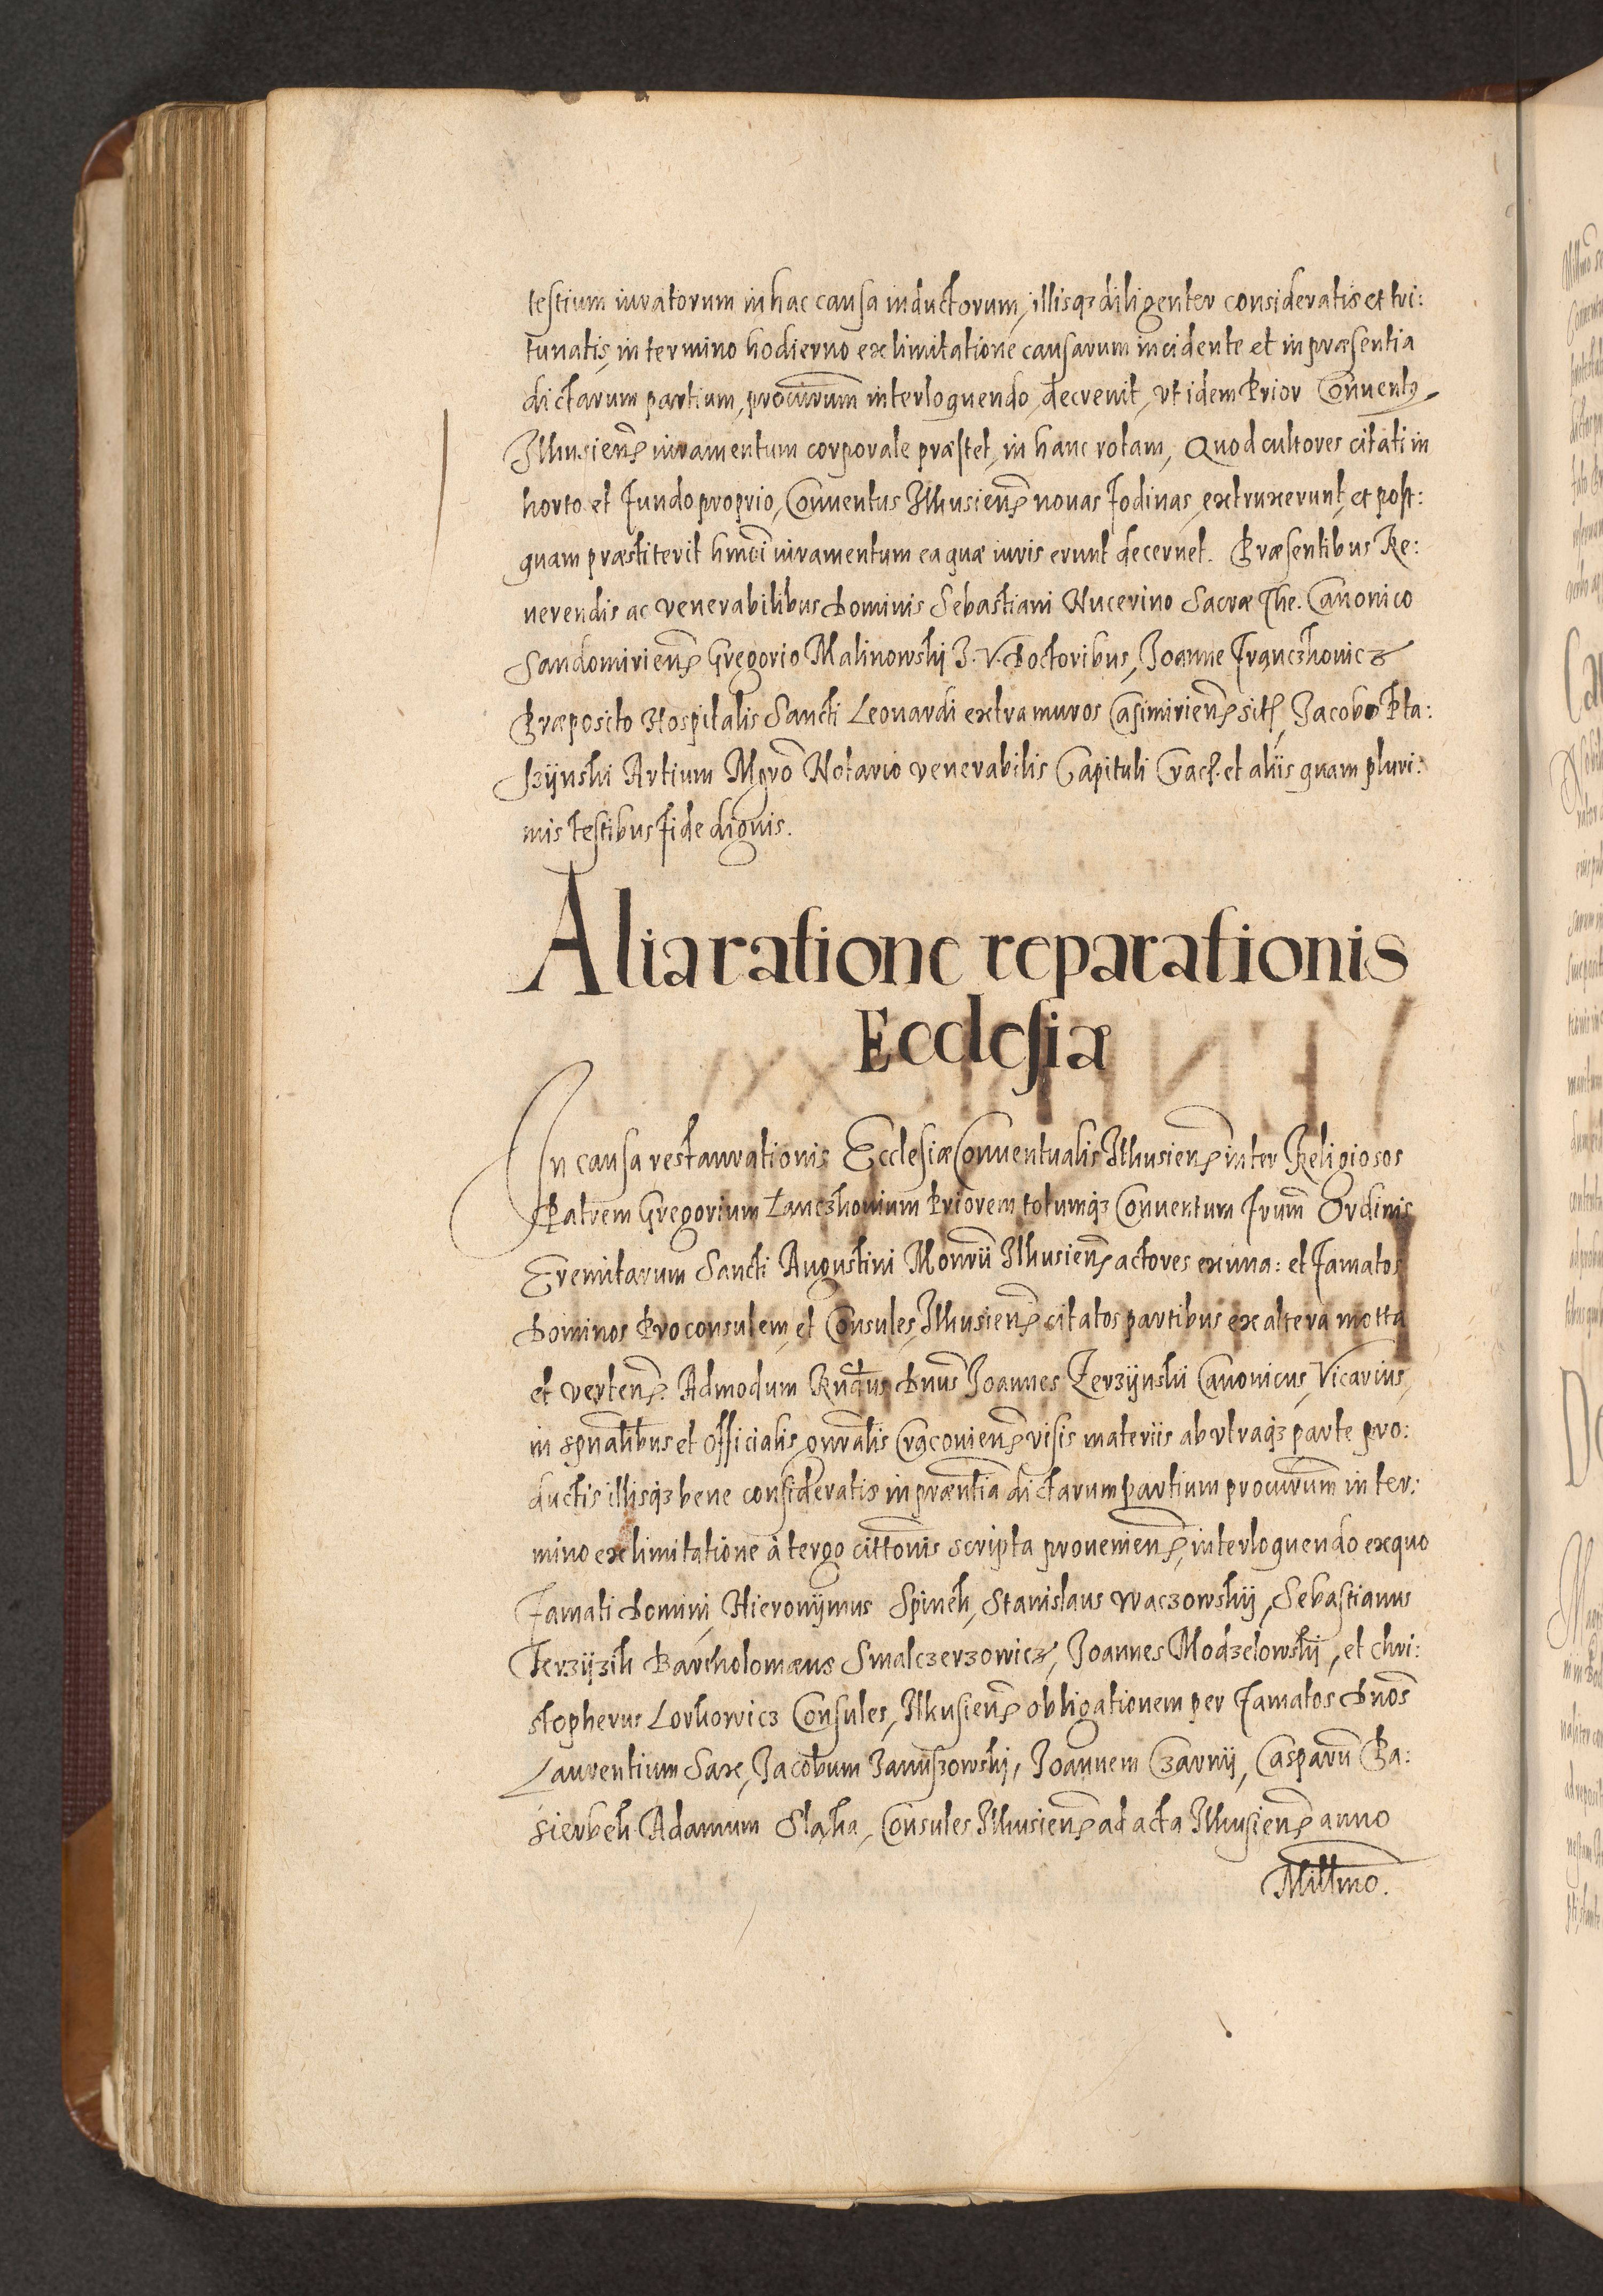 testium iuratorum in hac causa inductorum, illisqꝫ diligenter consideratis et tri:
tunatis, in termino hodierno ex limitatione causarum incidente et in præsentia
dictarum partium, procurum interloquendo, decrevit, vt idem Prior Conventꝰ
Ilkusienꝭ iuramentum corporale præstet, in hanc rotam, Quod cultores citati in
horto et fundo proprio, Conventus Ilkusienꝭ novas fodinas, extruxerunt, et post:
quam præstiterit hmoi iuramentum ea quæ iuris erunt decernet. Præsentibus Re:
uerendis ac venerabilibus Dominis Sebastiani Nucerino Sacræ The. Canonico
Sandomirienꝭ Gregorio Malinowski J. V. Doctoribus, Joanne Franczkovicz
Præposito Hospitalis Sancti Leonardi extra muros Casimirienꝭ sitꝭ, Jacobo Pla:
szÿnski Artium Mgro Notario venerabilis Capituli Cracꝭ. et aliis quam pluri:
mis testibus fide dignis.
Alia ratione reparationis
Ecclesiæ
In causa restaurationis Ecclesiæ Conventualis Ilkusienꝭ inter Religiosos
Patrem Gregorium Lanczkonium Priorem totumqꝫ Conventum frum Ordinis
Eremitarum Sancti Augustini Monrii Ilkusienꝭ actores ex una: et famatos
Dominos Proconsulem, et Consules, Ilkusienꝭ citatos partibus ex altera motta
et vertenꝭ. Admodum Rndus Dnus Joannes Zerzÿnski Canonicus, Vicarius,
in spualibus et Officialis gnralis Cracouienꝭ visis materiis ab vtraqꝫ parte pro:
ductis illisqꝫ bene consideratis in præntia dictarum partium procurum in ter:
mino ex limitatione à tergo cittonis scripta provenienꝭ, interloquendo ex quo
famati Domini, Hieronÿmus Spinek, Stanislaus Waczowskÿ, Sebastianus
Terzÿzik Bartholomæus Smalczerzowicz, Joannes Modzelowskÿ, et Chri:
stopherus Lorkowicz Consules, Ilkusienꝭ obligationem per famatos Dnos
Laurentium Saxe, Jacobum Januszowskj, Joannem Czarnÿ, Casparu Ba:
sierbek Adamum Slaka, Consules Ilkusienꝭ ad acta Ilkusienꝭ anno
Millmo.